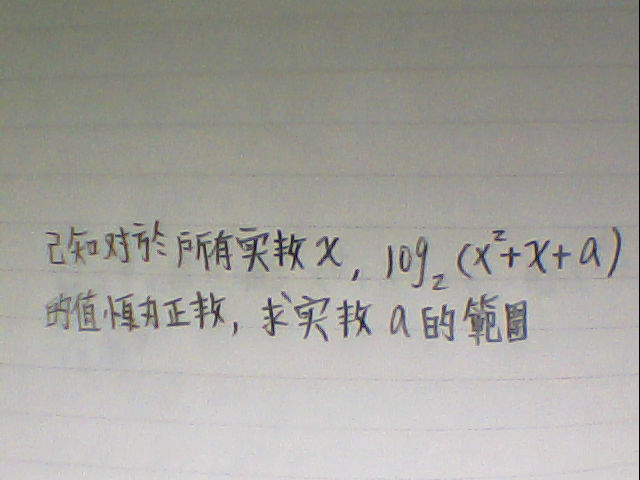 已知对於所有实数x，log₂(x²+x+a)
的值恆为正数，求实数a的範圍